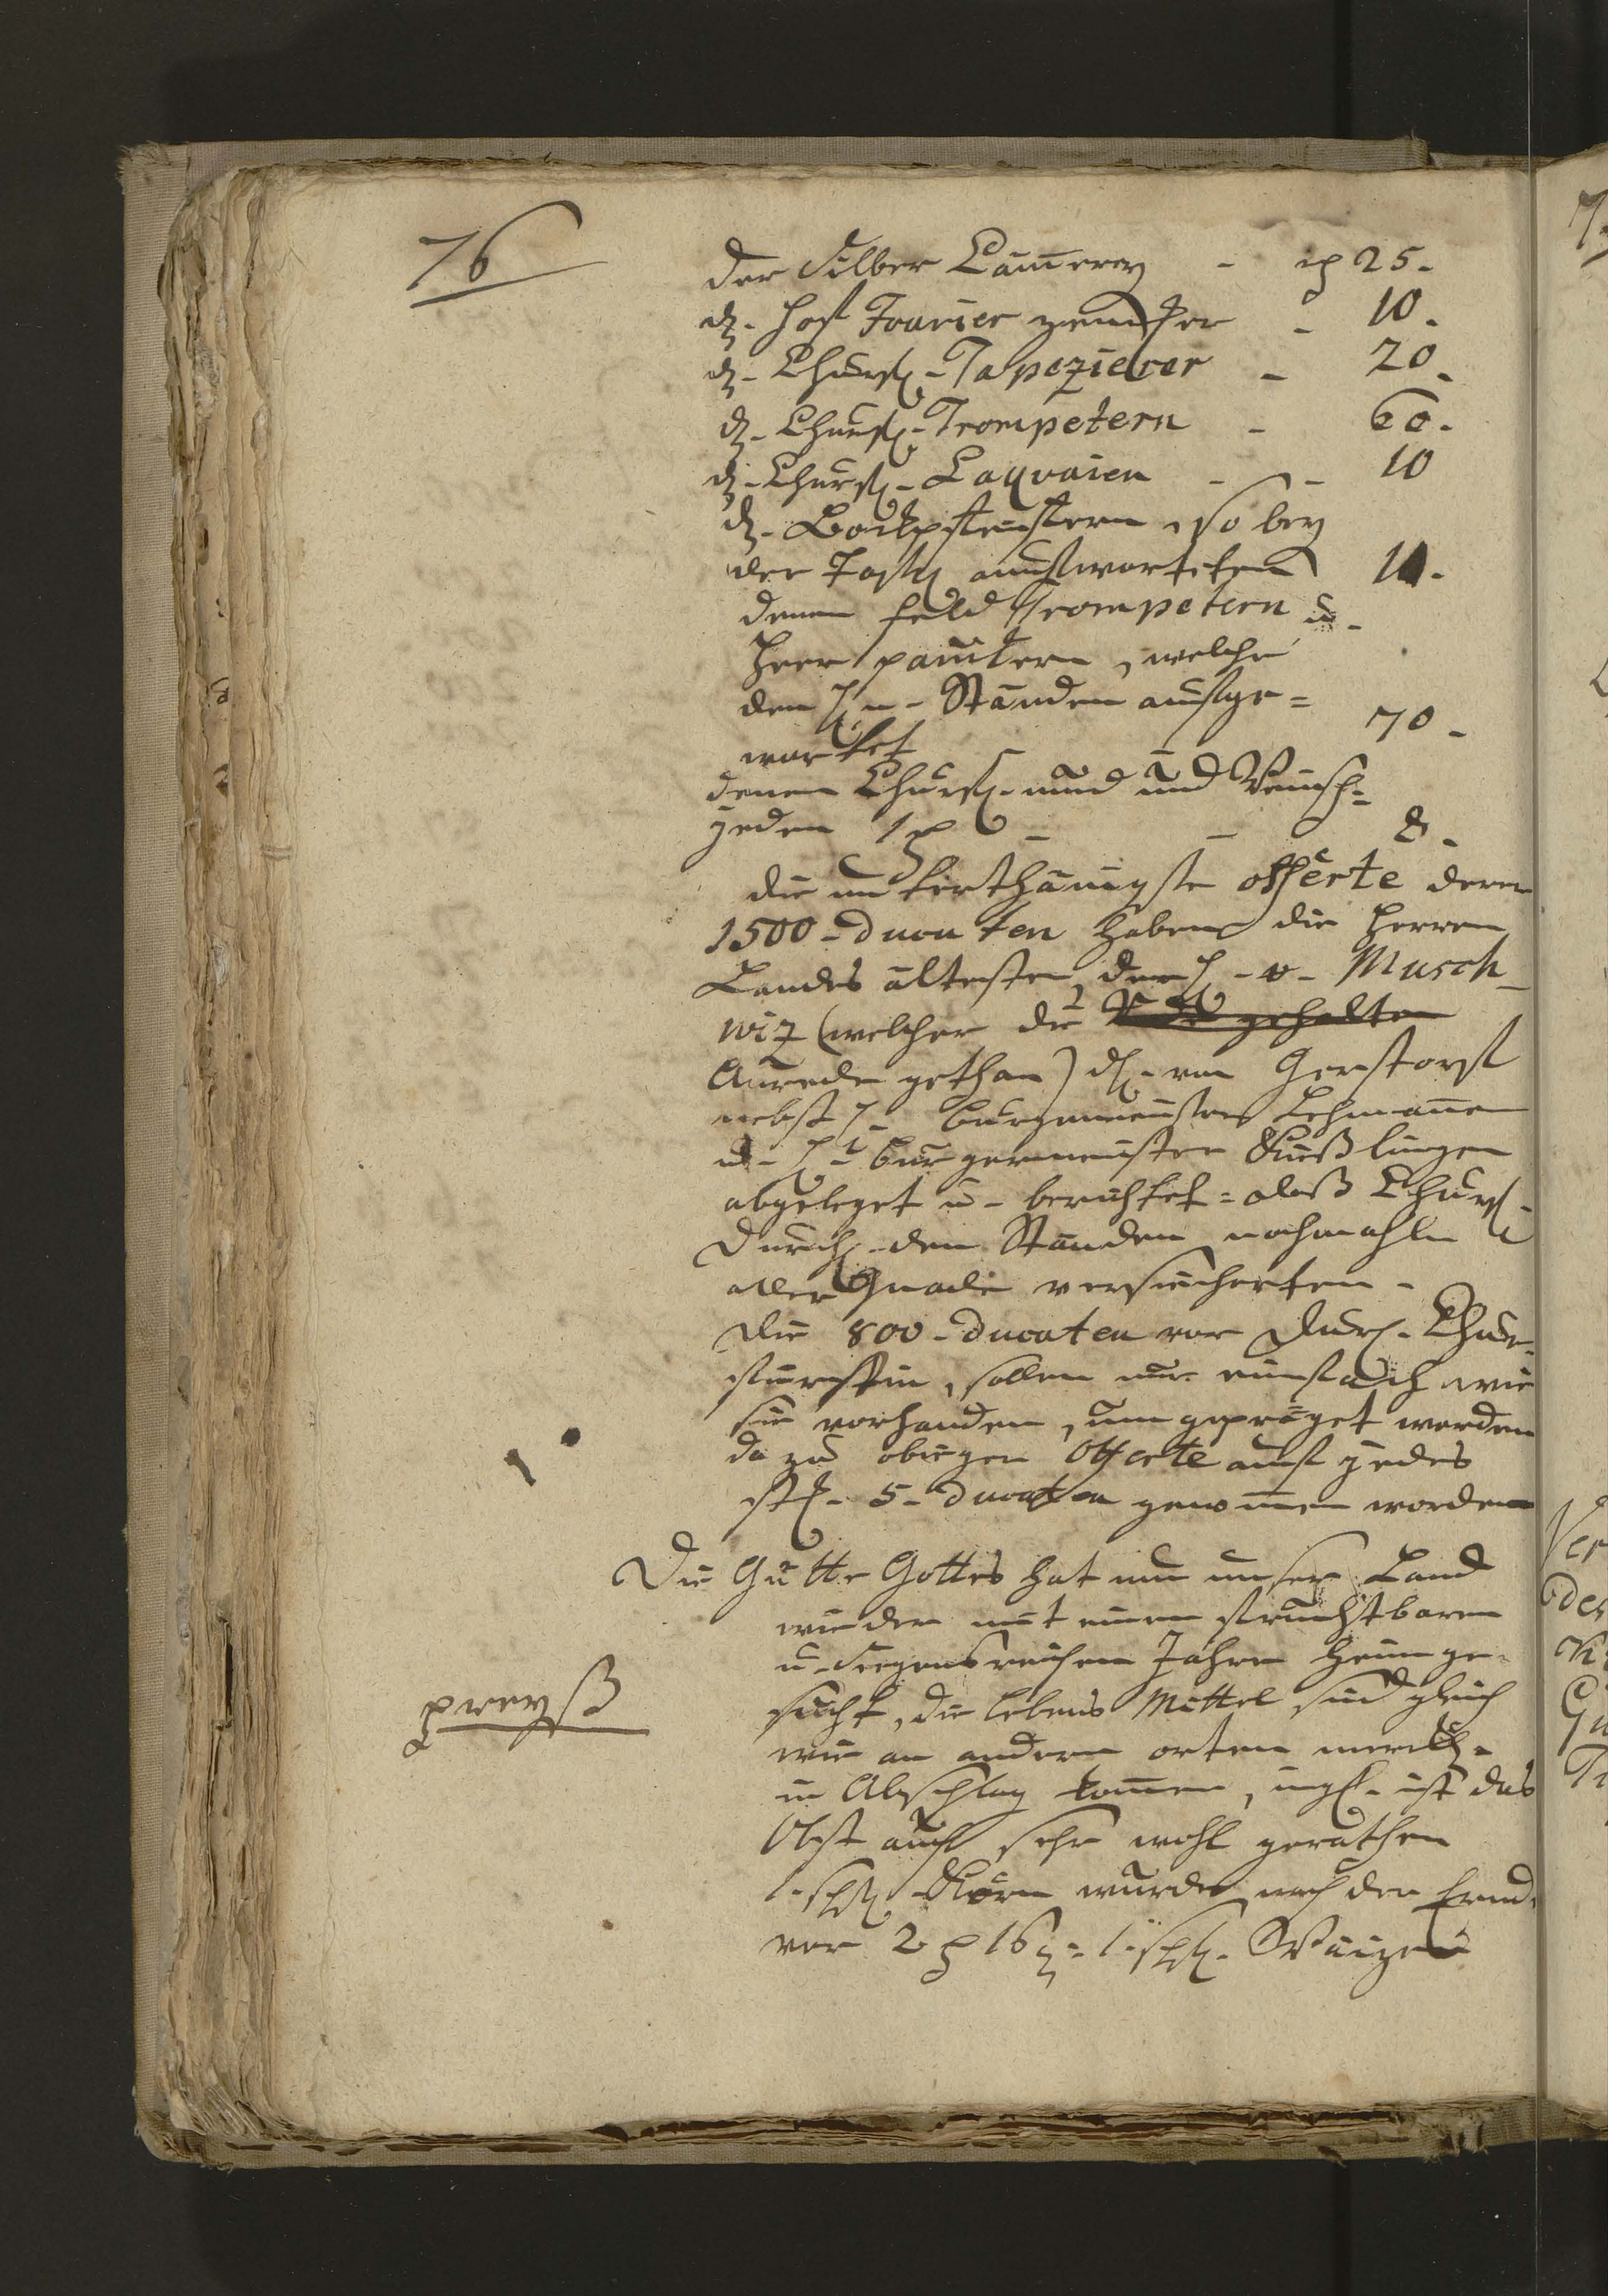 76
der Silber Cammerey - rth 25.
d. Hoff Fourier - 10.
d. Churf. Tapezierer - 20.
d. Churf. Trompetern - 60.
d. Churf. Laqvaien - - 10
d. so bey
der Taffel auffwarteten 10.
denen Feld Trompetern u.
Heer pauckern, welche
den H. n. Ständen auffge=
wartet 70.
denen Churf. und
jeden 1 rth - - 8.
die unterthänigste offerte derer
1500 - Ducaten haben die Herren
Landes ältesten, der H. v. Musch
wiz (welcher die Rede gehalten
Anrede gethan) H. von Gerstorff
nebst H. Burgemeister Lehmann
u. H. Burgermeister Kießlingen
abgeleget u. berichtet = daß Churf.
Durchl. den Ständen nochmahln
aller Gnade versicherten.
Die 800 - Ducaten vor Durl. Chur-
fürstin, sollen nur einfach wie
sie vorhanden, umgepräget werden
da zu obigen Offerte auff jedes
st. 5 - Ducaten genommen worden
Die Gütte Gottes hat nun unser Land
wieder mit einem fruchtbaren
u. Seegensreichen Jahre heimge-
sucht, die lebens Mittel sind gleich
preyß
wie an andern orten merckl.
in Abschlag kommen, ingl. ist das
Obst auch sehr wohl gerathen
1. schfl. Korn wurde nach der Ernd.
vor 2 rth 16 g. 1. schfl. Waizen